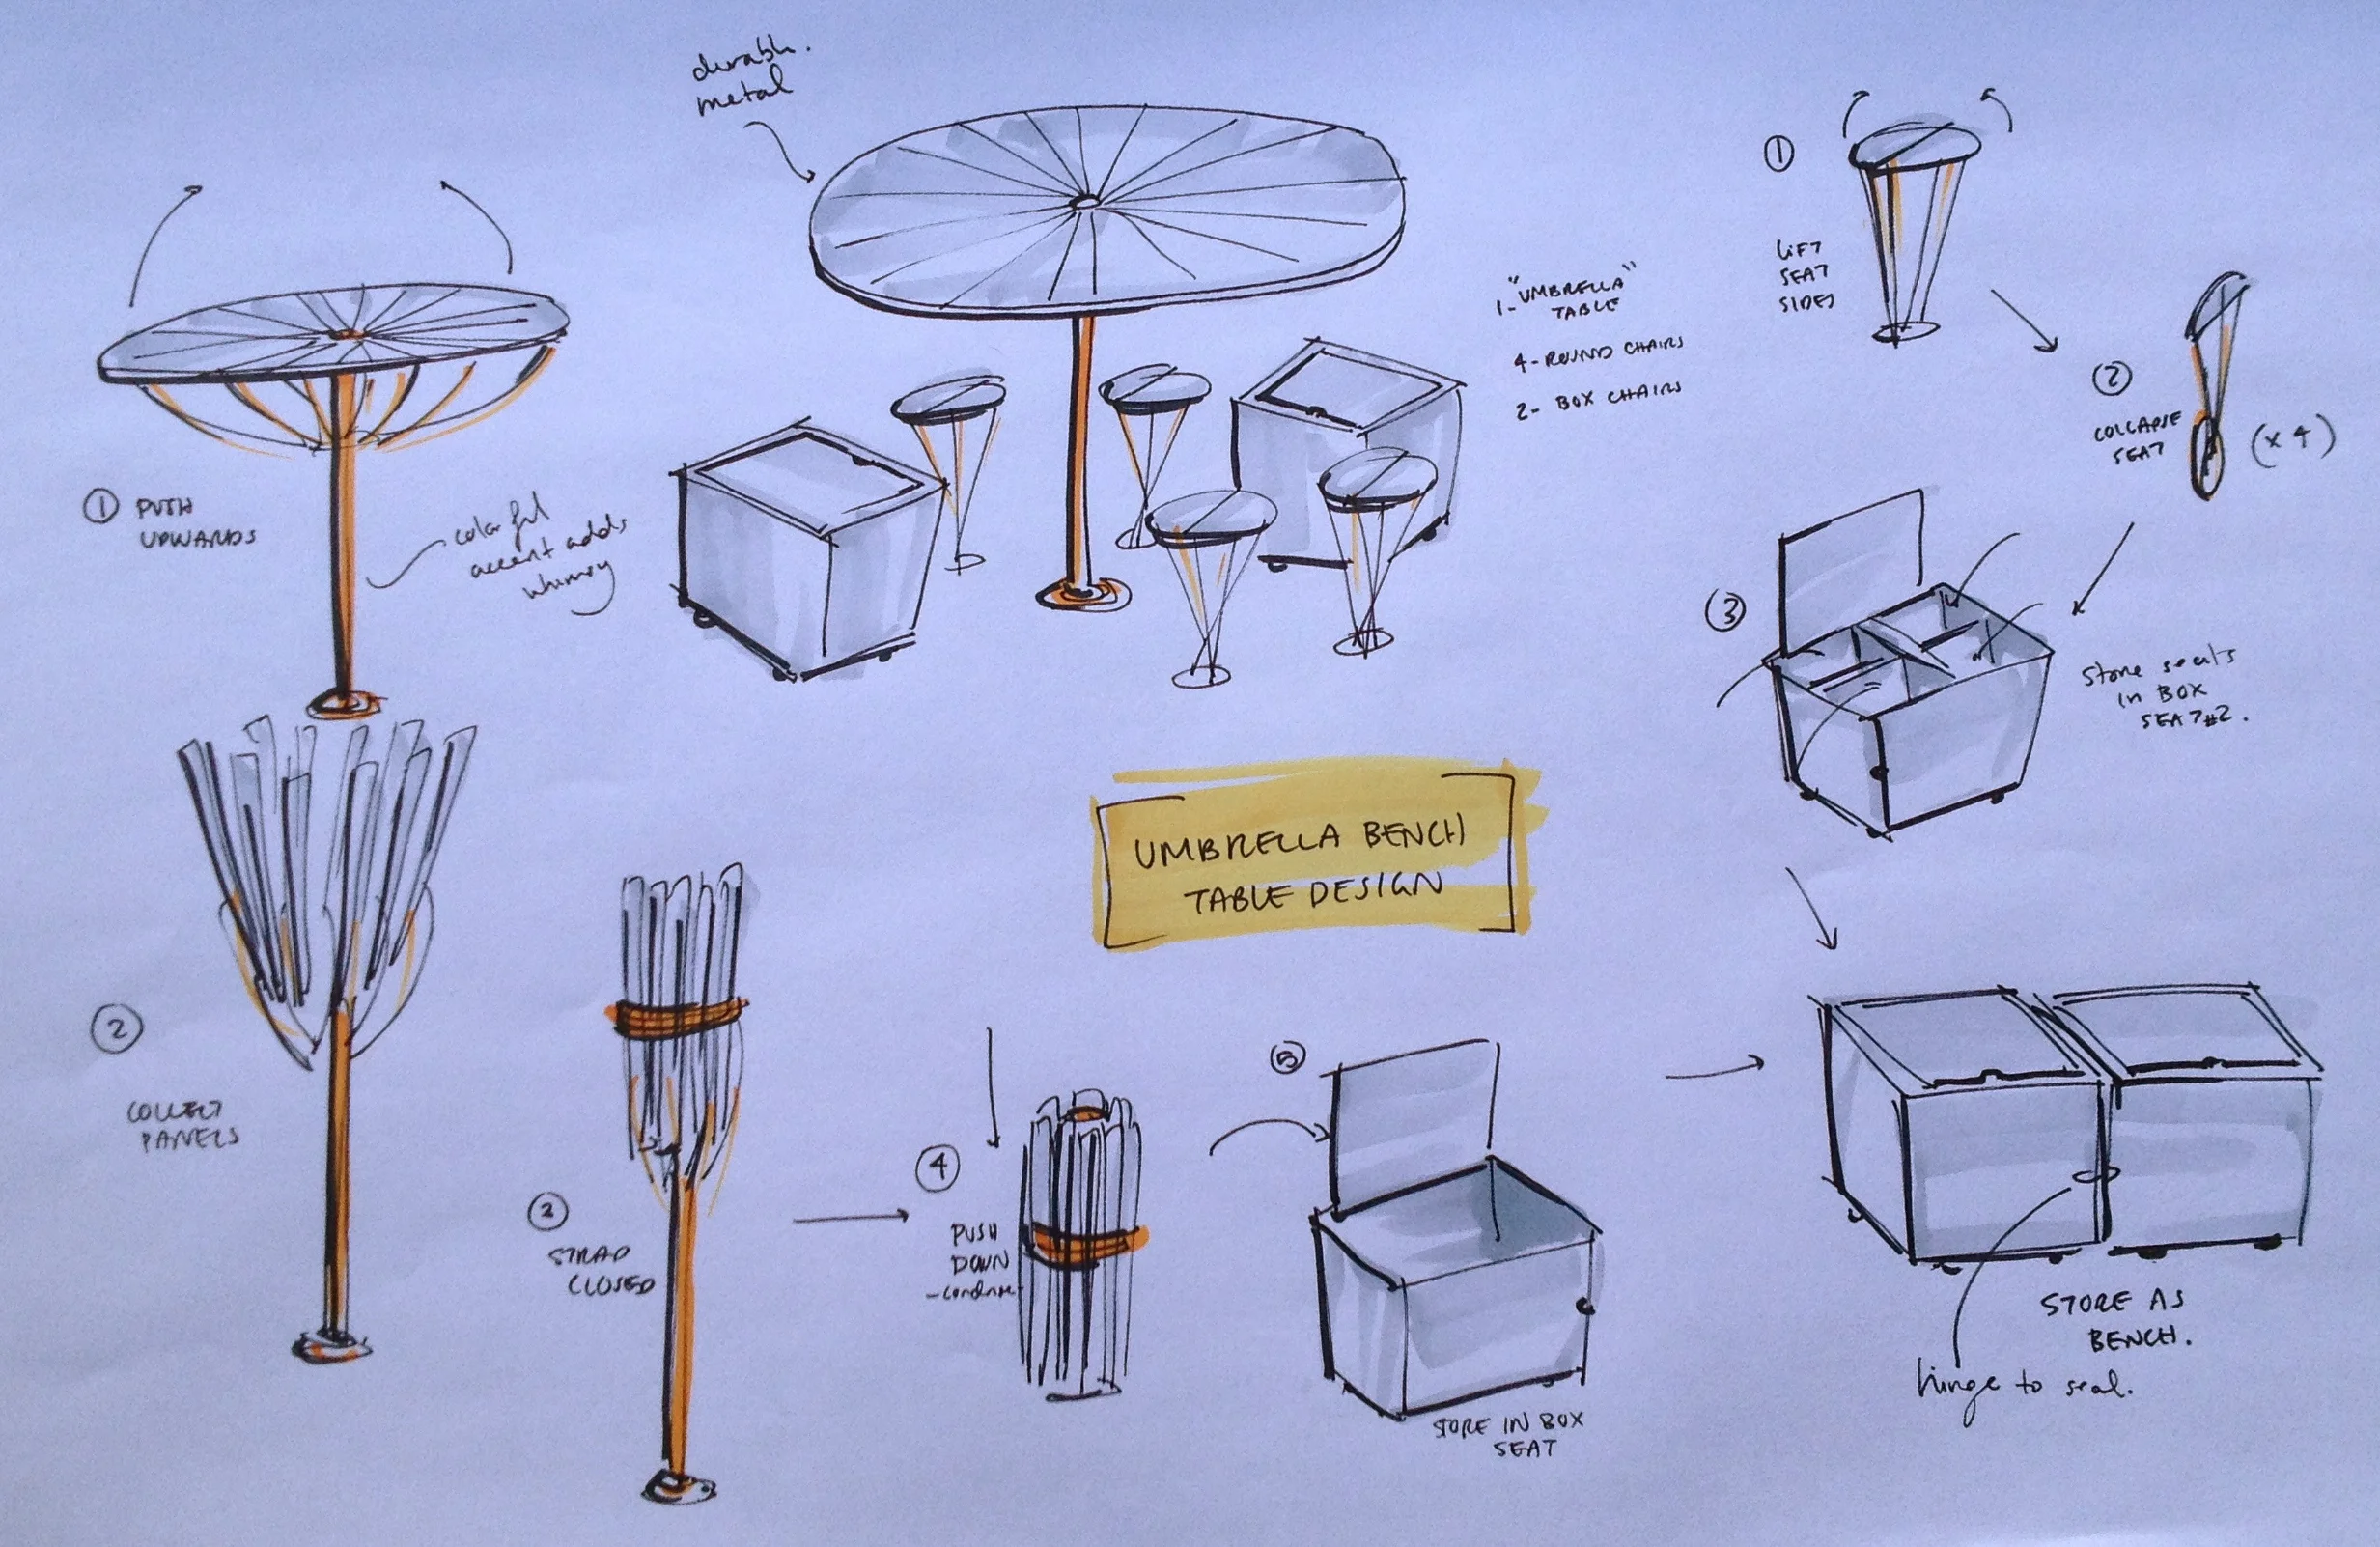 durable.
metal
1-"UMBRELLA"
TABLE
4-ROUND CHAIRS
2- BOX CHAIRS
1
PUSH
UPWARDS
colorful
accent adds
whimsy
2
COLLECT
PANELS
3
STRAP
CLOSED
4
PUSH
DOWN
-condense-
5
STORE IN BOX
SEAT
UMBRELLA BENCH
TABLE DESIGN
1
LIFT
SEAT
SIDES
2
COLLAPSE
SEAT
(x4)
3
store seats
in BOX
SEAT#2.
STORE AS
BENCH.
hinge to seal.